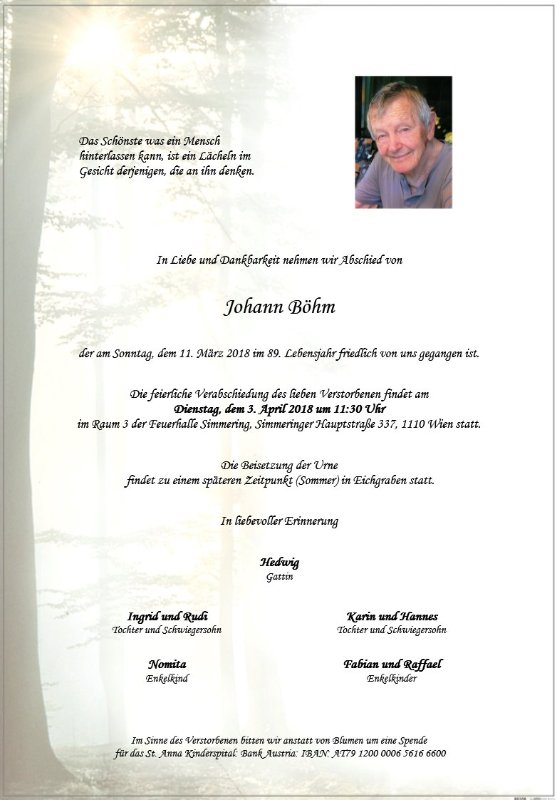 Das Schönste was ein Mensch
hinterlassen kann, ist ein Lächeln im
Gesicht derjenigen, die an ihn denken.
In Liebe und Dankbarkeit nehmen wir Abschied von
Johann Böhm
der am Sonntag, dem 11. März 2018 im 89. Lebensjahr friedlich von uns gegangen ist.
Die feierliche Verabschiedung des lieben Verstorbenen findet am
Dienstag, dem 3. April 2018 um 11:30 Uhr
im Raum 3 der Feuerhalle Simmering, Simmeringer Hauptstraße 337, 1110 Wien statt.
Die Beisetzung der Urne
findet zu einem späteren Zeitpunkt (Sommer) in Eichgraben statt.
In liebevoller Erinnerung
Hedwig
Gattin
Ingrid und Rudi
Tochter und Schwiegersohn
Karin und Hannes
Tochter und Schwiegersohn
Nomita
Enkelkind
Fabian und Raffael
Enkelkinder
Im Sinne des Verstorbenen bitten wir anstatt von Blumen um eine Spende
für das St. Anna Kinderspital: Bank Austria: IBAN: AT79 1200 0006 5616 6600